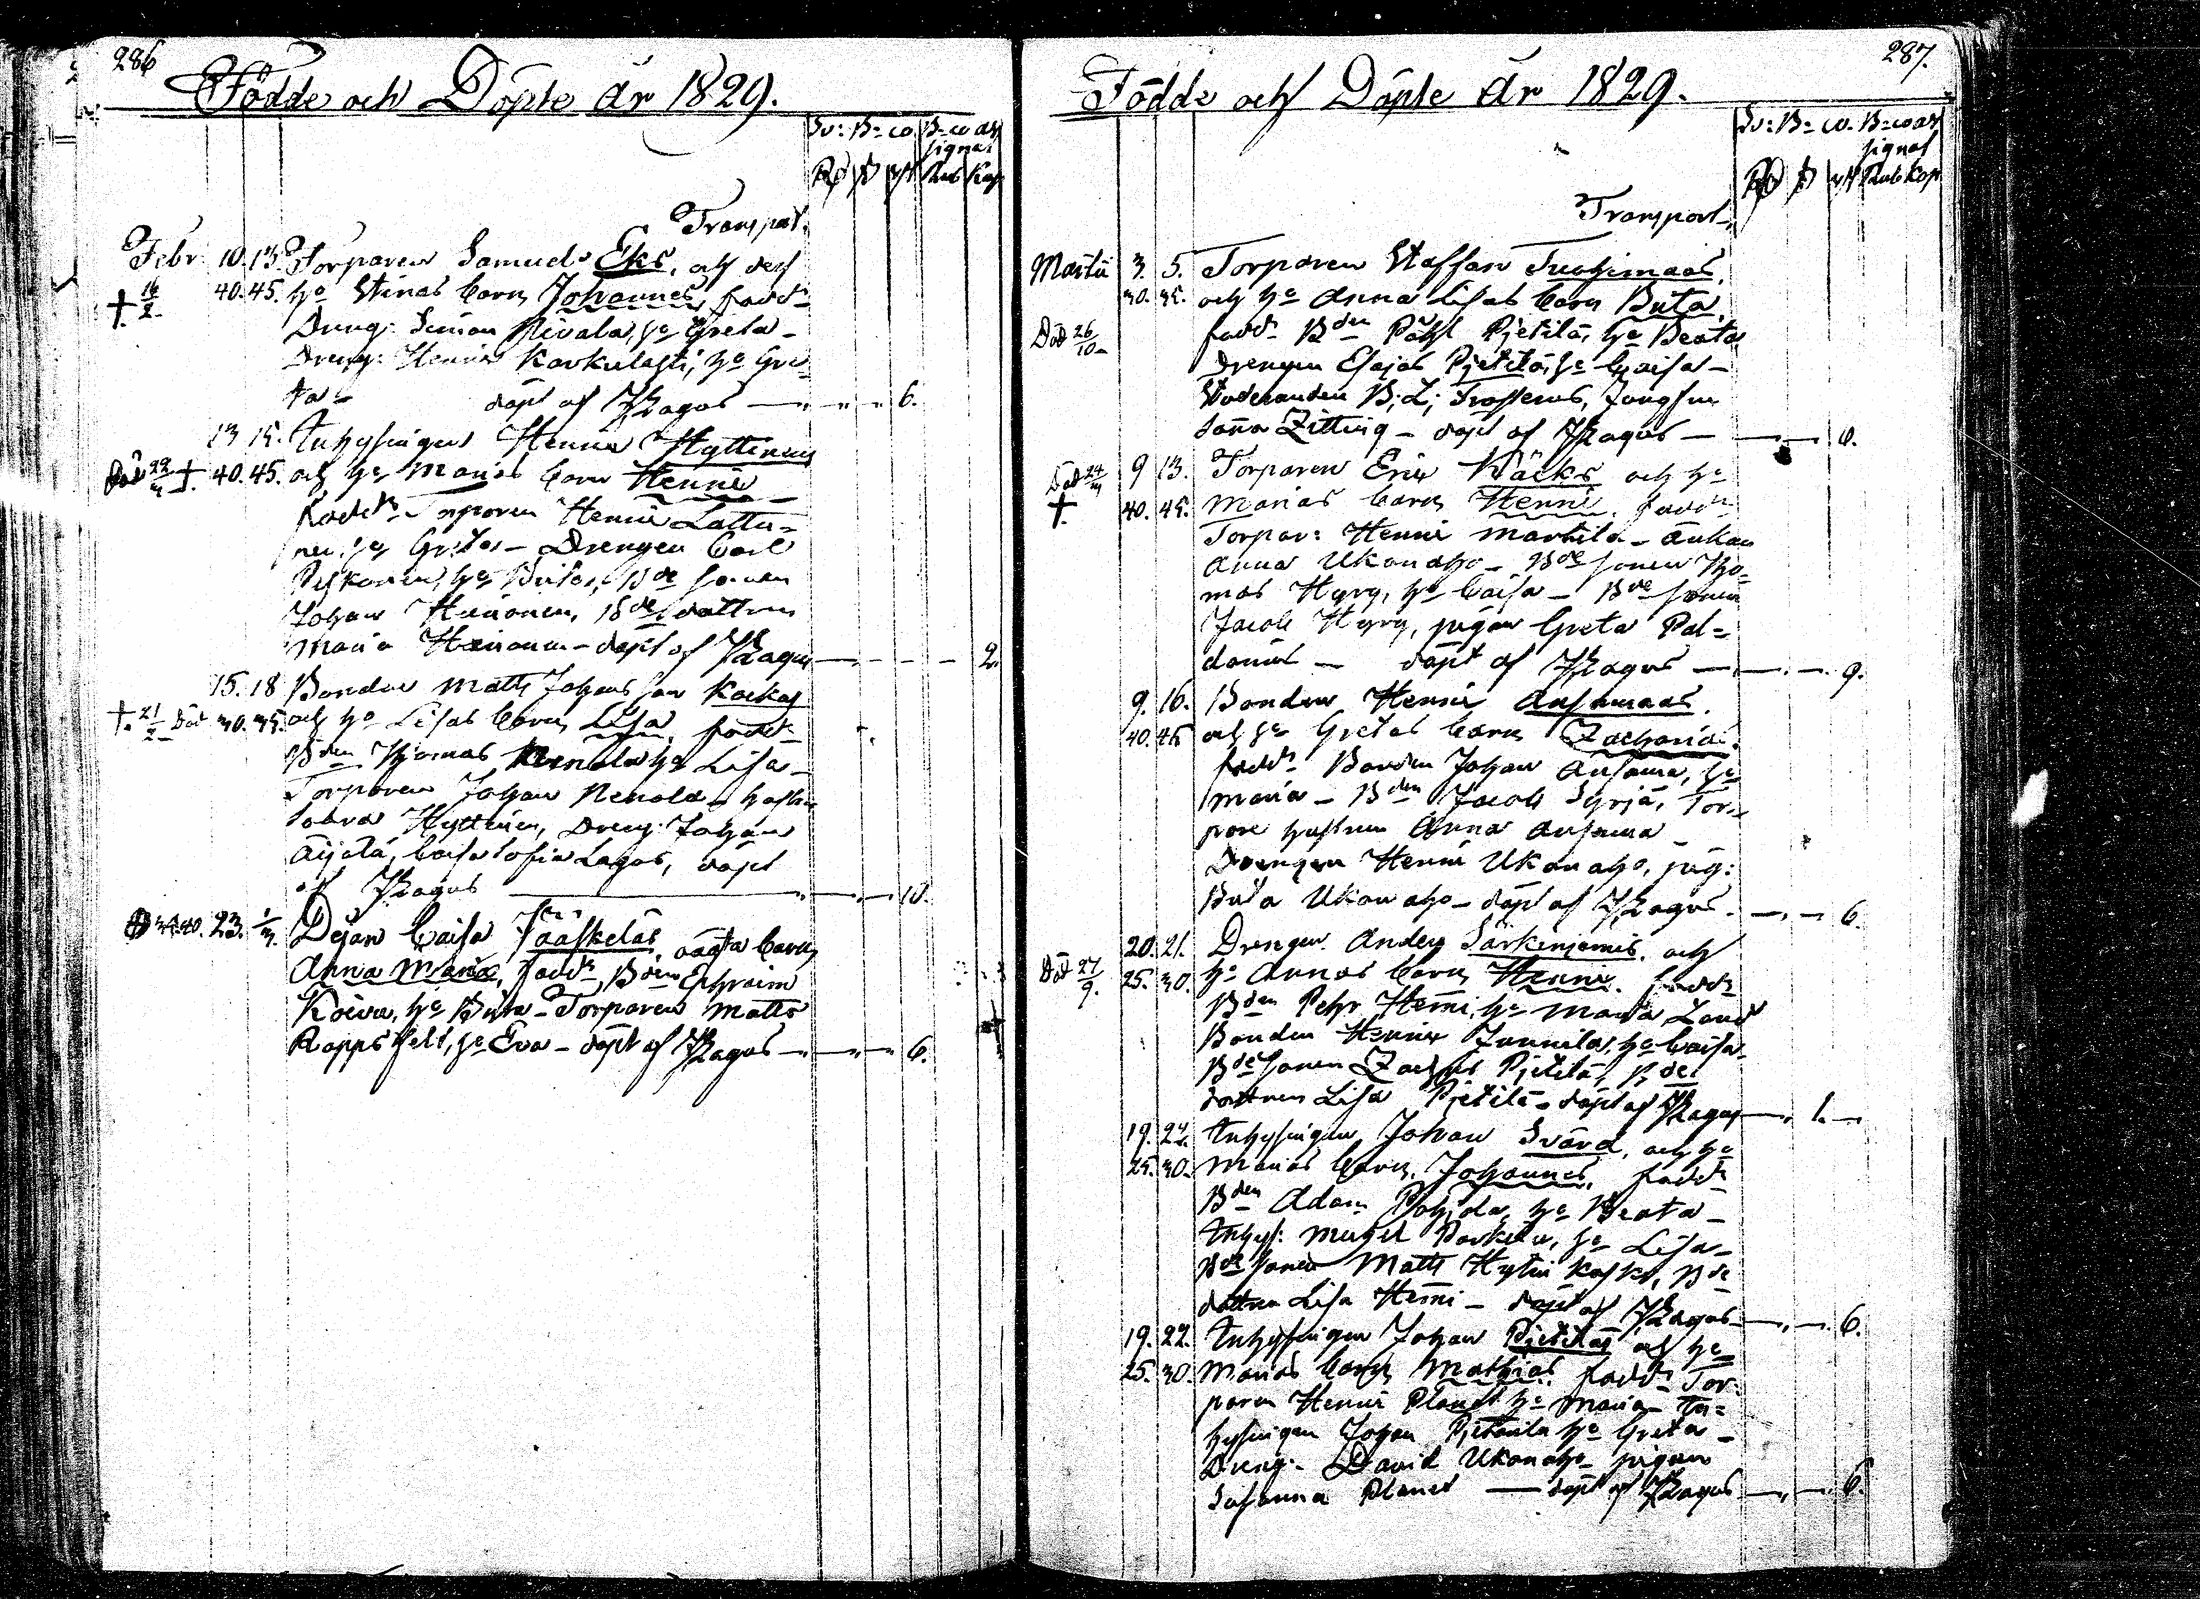 286
Födde och Döpte År 1829.
Sv: B=co. B=co as
signat
Rd ß rst Rub Kop
Transport.
Febr 10. 13. Torparen Samuel Eks, och desf
† 16/2 40. 45. ho Stinas barn Johannes, fadd:
Dreng: Simon Rivala, ho Greta –
Dreng: Henric Karkulahti, ho Gre=
ta – döpt af JLagus — 6.
13 15. Inhysingen Henric Hyttinens
Död 22/3 †. 40. 45. och ho Marias barn Henric
Fadd: Torparen Henric Lattu=
nen, ho Greta – Drengen Carl
Pelkonen, ho Brita, Bde sonen
Johan Heinonen, Bde dottren
Maria Heinonen – döpt af JLagus — 2.
15. 18 Bonden Matts Johansson Koskas
†. 21/2 Död 30. 35. och ho Lisas barn Lisa, fadd:
Bden Thomas Nenola ho Lisa –
Torparen Johan Nenola – hustru
Sabra Hyttinen, Dreng: Johan
Äijälä, Caisa Sofia Lagus, döpt
af JLagus — 10.
40. 23. 1/3. Dejan Caisa Jääskeläs, oägta barn
Anna Maria, fadd: Bden Ephraim
Koiva, ho Brita – Torparen Matts
Rappsfelt, ho Eva – döpt af JLagus — 6.
287.
Födde och Döpte År 1829.
Sv: B= co. B=co as
signat
Rd ß rst Rub Kop
Transport.
Martii 3. 5. Torparen Staffan Tuohimaas,
30. 35. och ho Anna Lisas barn Brita,
Död 26/10 fadd: Bden Påhl Pjetilä, ho Beata
Drengen Esajas Pjetilä, ho Caisa –
Studeranden B: L: Frosterus, Jungfru
Sanna Zitting – döpt af JLagus — 6.
Död 24/3 9 13. Torparen Eric Wäcks och ho
†. 40. 45. Marias barn Henric, fadd:
Torpar: Henric Markila – änkan
Anna Ukonaho – Bde sonen Tho=
mas Hyry, ho Caisa – Bde sonen
Jacob Hyry, pigan Greta Pal=
danius – döpt af JLagus — 9.
9. 16. Bonden Henric Ansamaas,
40. 45 och ho Gretas barn Zacharias.
fadd: Bonden Johan Ansama, ho
Maria – Bden Jacob Syrjä, Tor=
pare hustrun Anna Ansama –
Drengen Henric Ukonaho, pig:
Brita Ukonaho – döpt af JLagus. — 6.
20. 21. Drengen Anders Särkeniemis, och
Död 27/9. 25. 30. ho Annas barn Henric. fadd:
Bden Pehr Hemi, ho Maria Lovis
Bonden Henric Junnila, ho Caisa –
Bde sonen Zachris Pjetilä, Bde
dottren Lisa Pjetilä – döpt af JLagus — 1. —
19. 22. Inhysingen Johan Svärd, och ho
25. 30. Marias barn Johannes, fadd:
Bden Adam Pohjola, ho Beata –
Inhys: Michel Parkila, ho Lisa –
Bde sonen Matts Hytin koski, Bde
dottren Lisa Hemi – döpt af JLagus — 6.
19. 22. Inhysingen Johan Pjetiläs och ho
25. 30. Marias barn Mathias, fadd: Tor=
paren Henric Planet ho Maria – In=
hysingen Johan Pjetarila ho Greta –
Dreng: David Ukonaho – pigan
Susanna Planet — döpt af JLagus — 6.